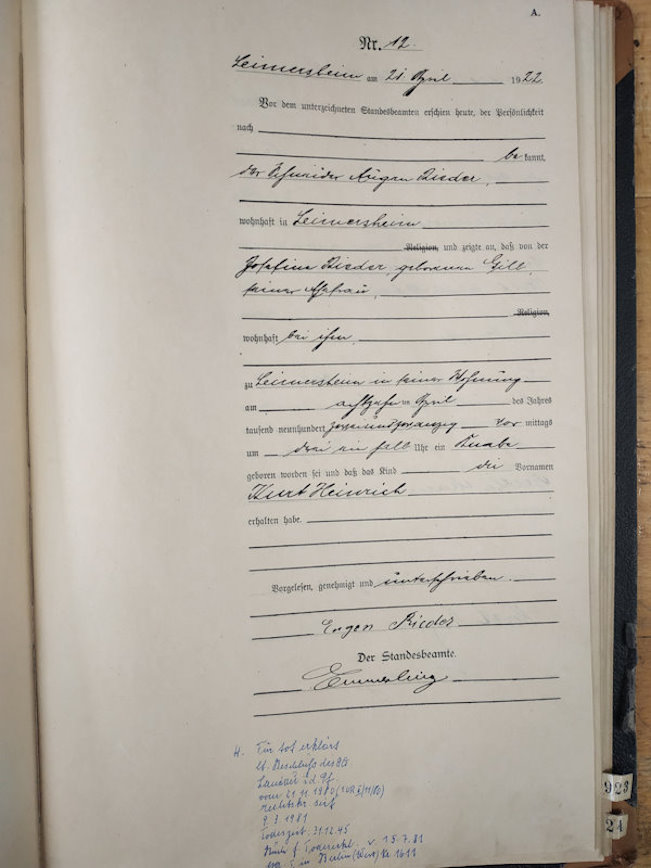 A.
Nr. 12.
Leimersheim am 21 April 1922
Vor dem unterzeichneten Standesbeamten erschien heute, der Persönlichkeit
nach
bekannt,
der Schneider Eugen Rieder,
wohnhaft in Leimersheim
Religion, und zeigte an, daß von der
Josefine Rieder, geborenen Gill,
seiner Ehefrau,
Religion,
wohnhaft bei ihm
zu Leimersheim in seiner Wohnung
am achtzehnten April des Jahres
tausend neunhundert zweiundzwanzig vor mittags
um drei ein halb Uhr ein Knabe
geboren worden sei und daß das Kind die Vornamen
Kurt Heinrich
erhalten habe.
Vorgelesen, genehmigt und unterschrieben.
Eugen Rieder
Der Standesbeamte.
Emmerling
H. Für tot erklärt
lt. Beschluß des AG.
Landau i.d. Pf.
vom 21.11.1980 (1 UR II/11/80)
rechtskr. seit
9.3.1981
Todeszeit: 31.12.45
Buch f. Todeserkl. v. 15.7.81
in Berlin (West) Nr. 1611
923
24